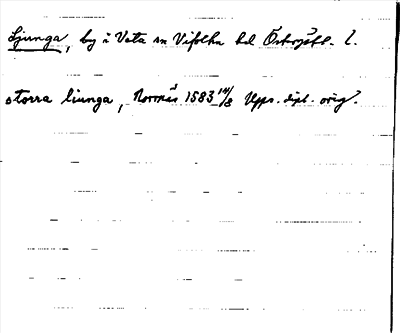 Ljunga, by i Veta sn Vifolka hd Östergötl. l.
storra liunga, Norrnäs 1583 14/8 Upps. dipl. orig.